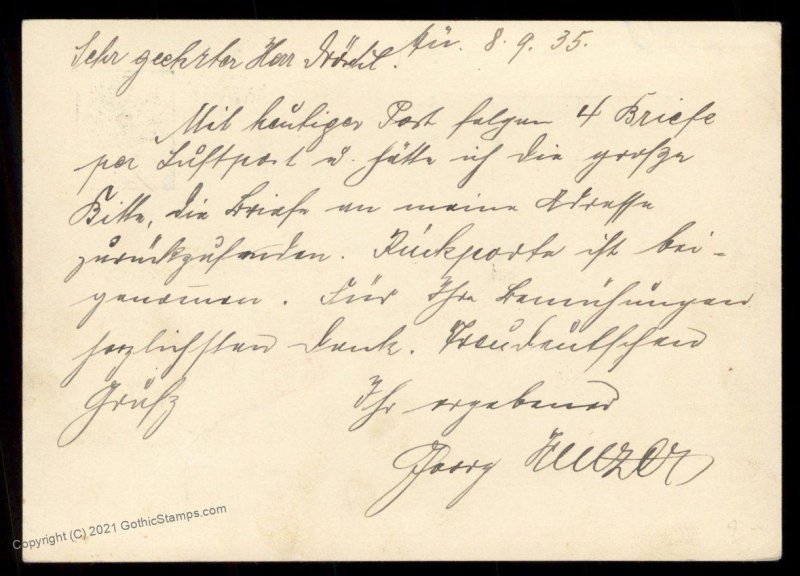 Mü. 8.9.35.
Sehr geehrter Herr
Mit heutiger Post folgen 4 Briefe
per Luftpost u. hätte ich die große
Bitte, die Briefe an meine Adresse
zurückzusenden. Rückporto ist bei-
genommen. Für Ihre Bemühungen
herzlichsten Dank. Treudeutschen
Gruß Ihr ergebener
Georg
Copyright (C) 2021 GothicStamps.com